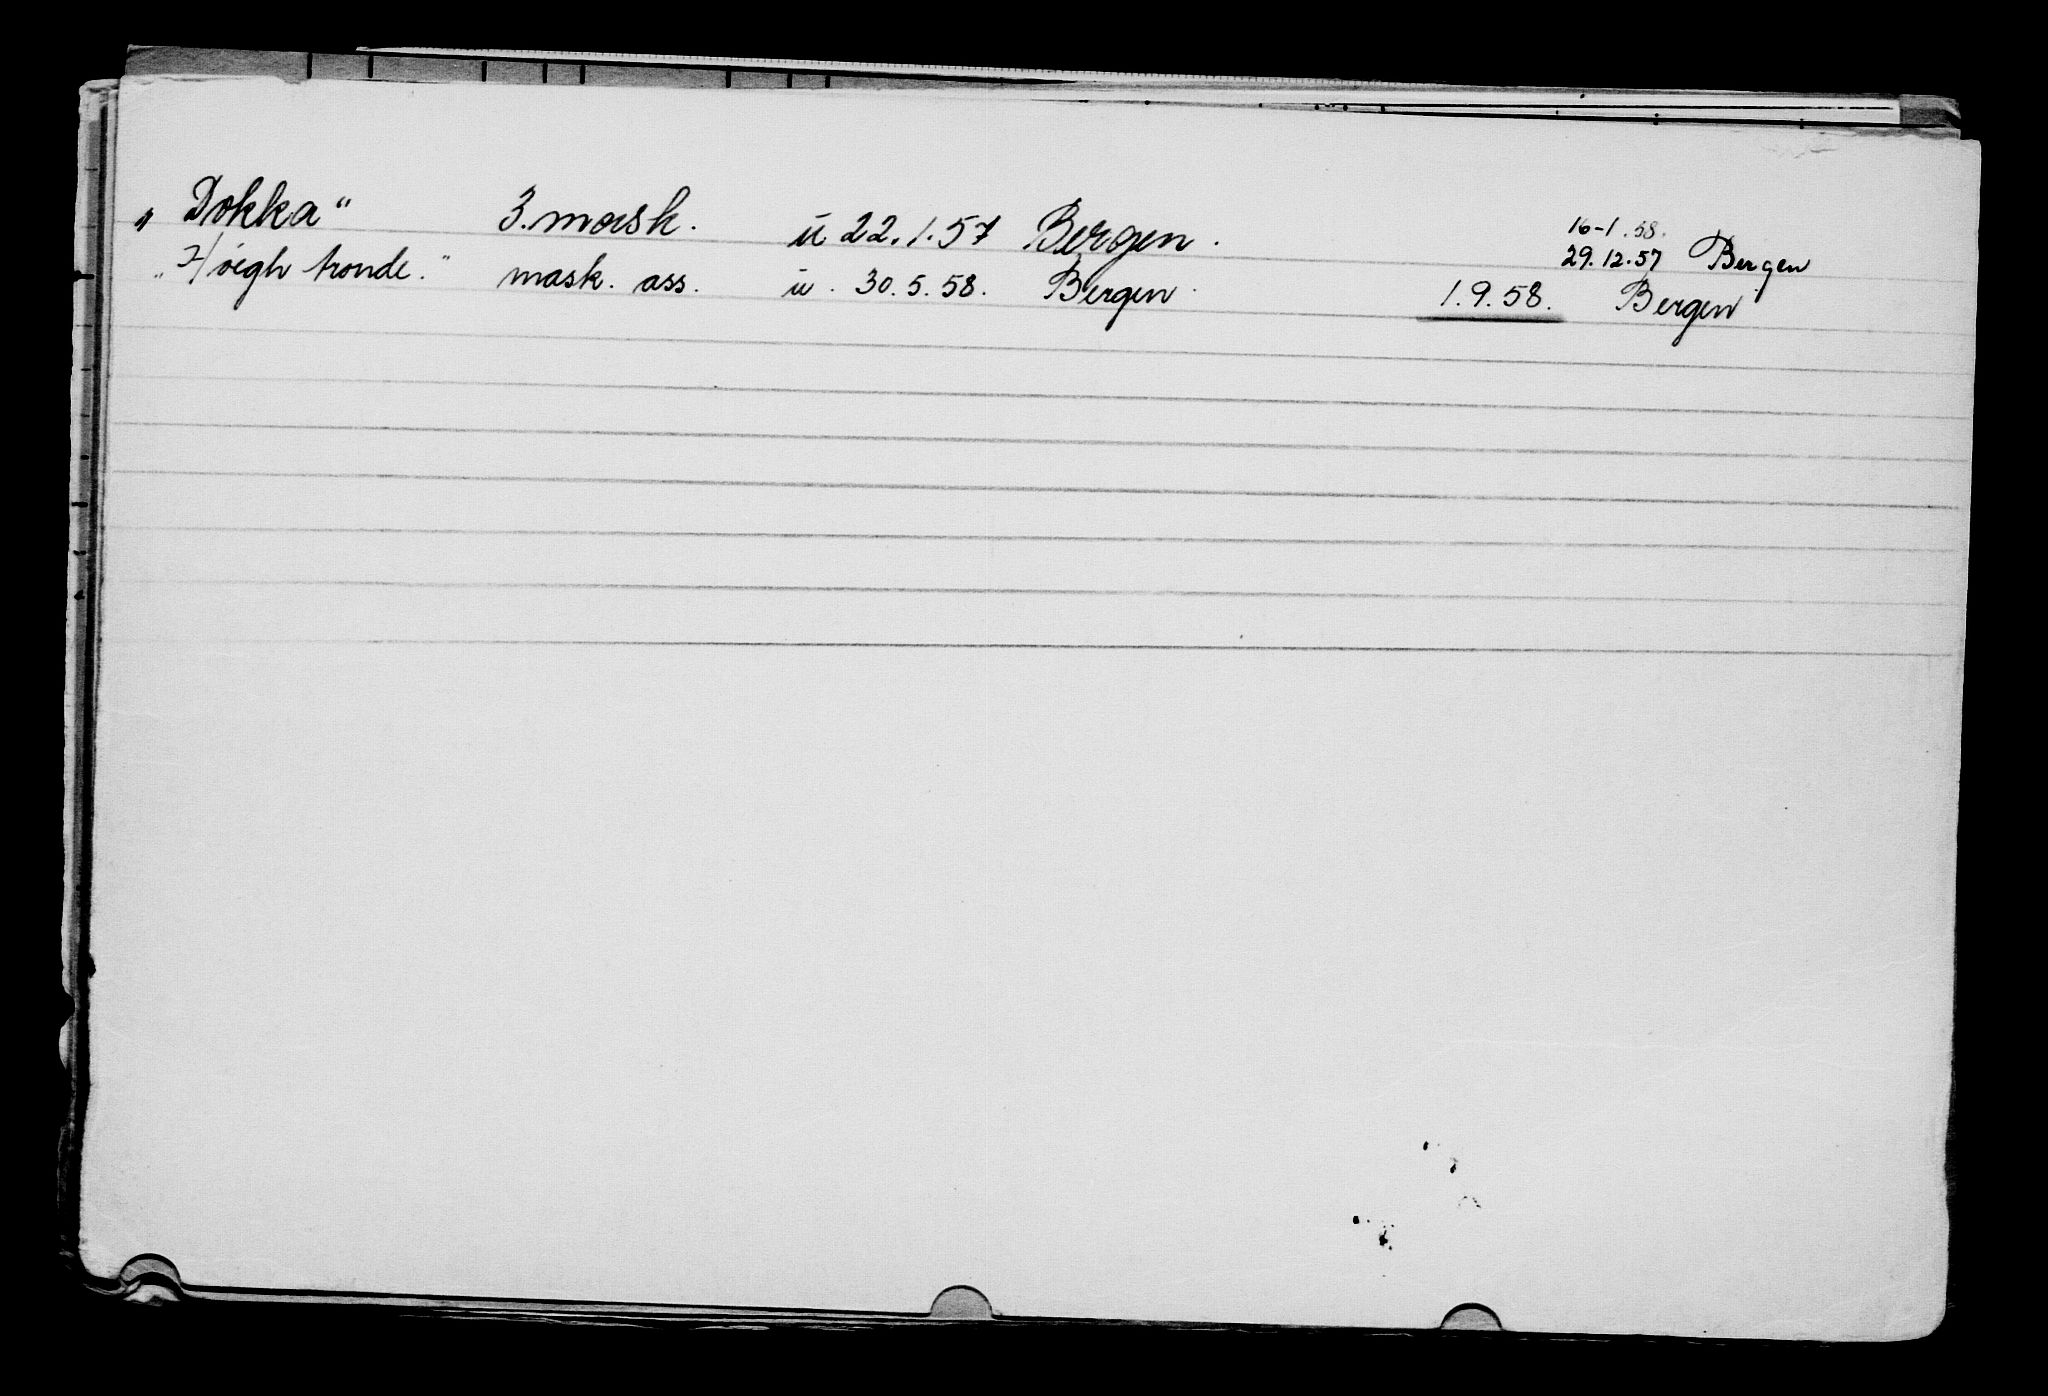 „ Dokka “ 3. mask. ū 22.1.57 Bergen. 16-1.58.
29.12.57 Bergen
„ Høegh tronde. “ mask. ass. ū. 30.5.58. Bergen. 1.9.58. Bergen